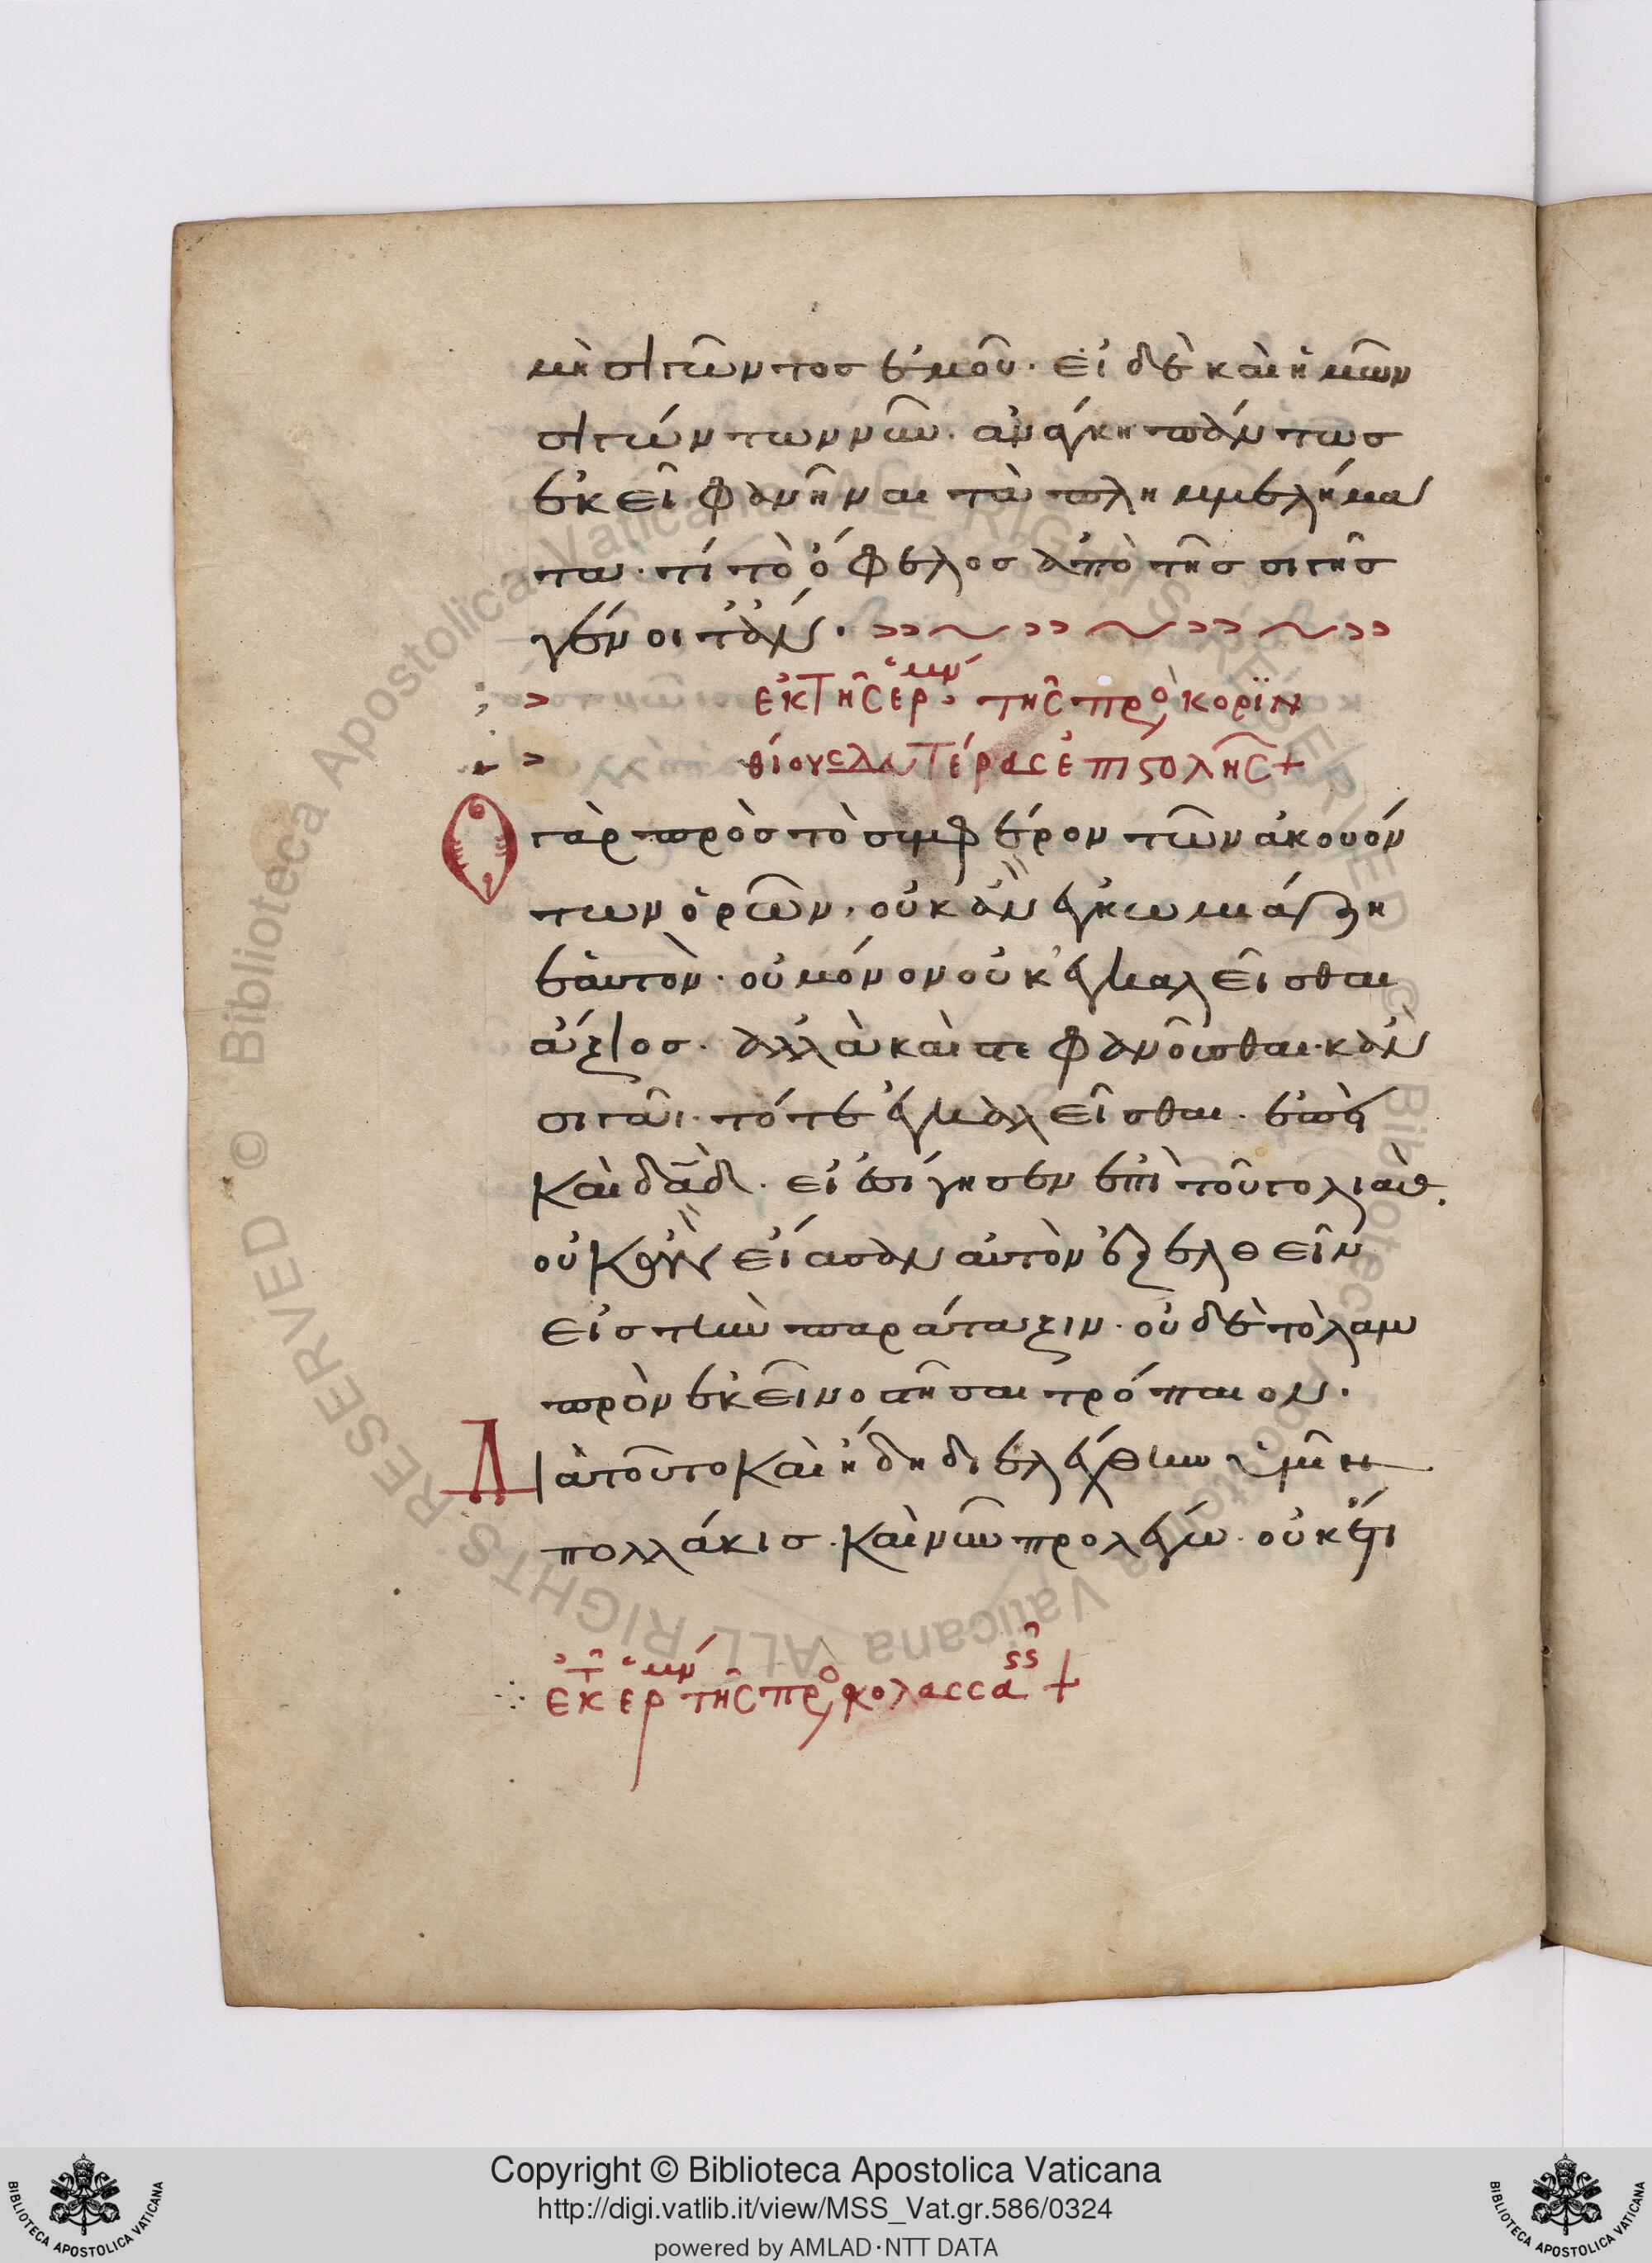 μὴ σιγῶντος ἐμοῦ· εἰ δὲ καὶ ἡμῶν
σιγώντων νῦν· ἀνάγκη πάντως
ἐκεῖ φανῆναι τὰ πλημμελήμα
τα· τί τὸ ὄφελος ἀπὸ τῆς σιγῆς
γένοιτ' ἄν·
ἐκ τῆς ἑρμν τῆς πρὸ κοριν
θίους δευτέρας ἐπιστολῆς +
Ο γὰρ πρὸς τὸ συμφέρον τῶν ἀκουόν
των ὁρῶν, οὐκ ἂν ἐγκωμιάζη
ἑαυτὸν· οὐ μόνον οὐκ ἐγκαλεῖσθαι
ἄξιος· ἀλλὰ καὶ στεφανοῦσθαι· κἂν
σιγᾶι· τότε ἐγκαλεῖσθαι· ἐπεὶ
καὶ δᾶδ· εἰ ἐσίγησεν ἐπὶ τοῦ γολιὰθ·
οὐκ ἂν εἴασαν αὐτὸν ἐξελθεῖν
εἰς τὴν παράταξιν· οὐδὲ τὸ λαμ
πρὸν ἐκεῖνο στῆσαι τρόπαιον·
Διὰ τοῦτο καὶ ἤδη διελέχθην ὑμῖν
πολλάκις· καὶ νῦν προλέγω· οὐκ ἔτι
ἐκ τ ἑρμν τῆς πρὸ κολασσα +
Copyright © Biblioteca Apostolica Vaticana
http://digi.vatlib.it/view/MSS_Vat.gr.586/0324
powered by AMLAD·NTT DATA
BIBLIOTECA APOSTOLICA VATICANA
BIBLIOTECA APOSTOLICA VATICANA
© Biblioteca Apostolica Vaticana ALL RIGHTS RESERVED © Biblioteca Apostolica Vaticana ALL RIGHTS RESERVED